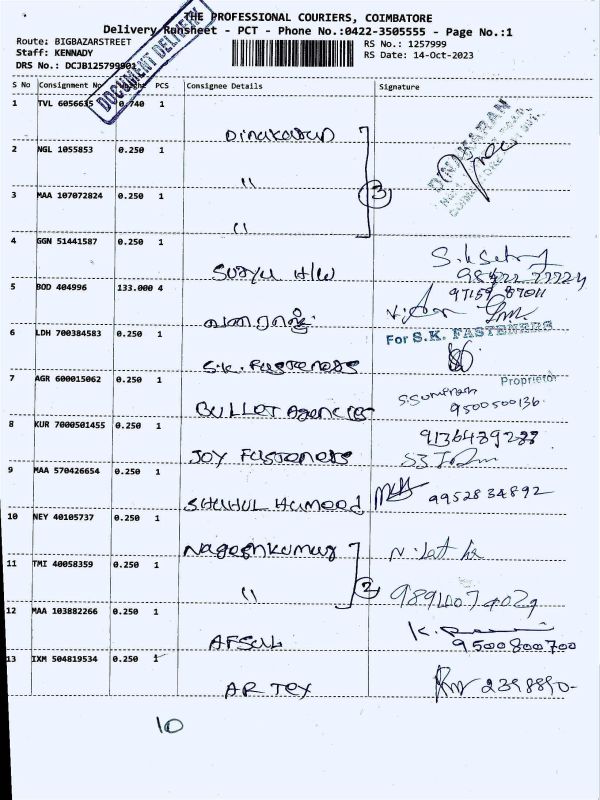 THE PROFESSIONAL COURIERS, COIMBATORE
Delivery Runsheet - PCT - Phone No.:0422-3505555 - Page No.:1
Route: BIGBAZARSTREET
RS No.: 1257999
Staff: KENNADY
RS Date: 14-Oct-2023
DRS No.: DCJB125799
DOCUMENT DELIVERY
S No Consignment No PCS Consignee Details Signature
1 TVL 6056635 0.740 1
Dinakaran
DINAKARAN
2 NGL 1055853 0.250 1
"
3 MAA 107072824 0.250 1
"
3
4 GGN 51441587 0.250 1
Surya H/W
5 BOD 404996 133.000 4
6 LDH 700384583 0.250 1
For S.K. FASTENERS
S.K. Fasteners
Proprietor
7 AGR 600015062 0.250 1
Bullet Agencies
9500500136
8 KUR 7000501455 0.250 1
Joy Fasteners
9 MAA 570426654 0.250 1
Shahul Hameed
9952834892
10 NEY 40105737 0.250 1
Nageshkumar
11 TMI 40058359 0.250 1
"
2
12 MAA 103882266 0.250 1
AFSAL
9500800700
13 IXM 504819534 0.250 1
AR TEX
10